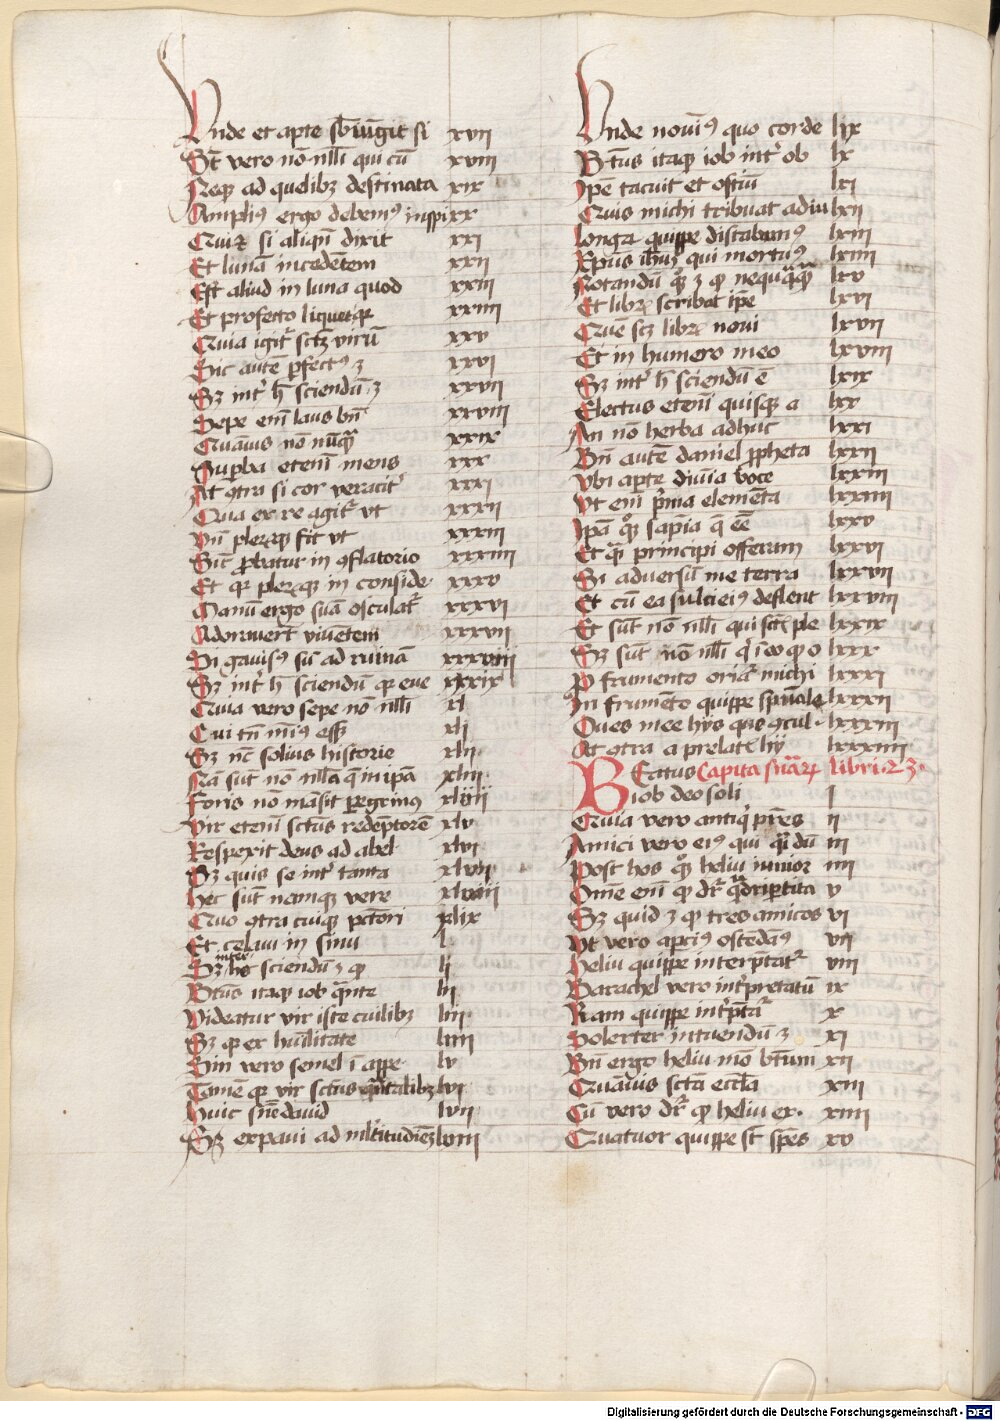 Vnde et apte sbiūgit si xvii
St̄ vero nō nlli qui cū xviii
Neqꝫ ad quelibꝫ destinata xix
Ampliꝰ ergo debemꝰ inspi xx
Quiꝫ si aliqn̄ dixit xxi
Et lunā incedētem xxii
Est aliud in luna quod xxiii
Et profecto liquet qꝛ xxiiii
Quia igit̉ sctꝫ virū xxv
Sic autē ꝑfectꝰ ꝫ xxvi
Sꝫ int̉ h̄ sciendū ꝫ xxvii
Sepe eni laus bn̄ xxviii
Quāuis nō nūqᷓ xxix
Suꝑba eteni mens xxx
At ꝯtra si cor veracit̉ xxxi
Qua ex re agit̉ vt xxxii
Vn̄ pleꝝqꝫ fit vt xxxiii
Sic̄ ꝓbatur in ꝯflatorio xxxiiii
Et qꝛ pleꝝqꝫ in conside xxxv
Manū ergo suā osculat̉ xxxvi
Adorauert̄ viuētem xxxvii
Si gauisꝰ sū ad ruinā xxxviii
Sꝫ int̉ h̄ sciendū qꝛ eue xxxix
Quia vero sepe no nlli xl
Cui tn̄ miꝰ ess̄ xli
Sꝫ nc̄ solius historie xlii
Nā sūt nō nlla q̄ in ipā xliii
Foris nō māsit ꝑegrinꝰ xliiii
Vir eteni sctūs redēptorē xlv
Respexit deus ad abel xlvi
Sꝫ quis se int̉ tanta xlvii
Hec sūt nemqꝫ vere xlviii
Quo ꝯtra cuiqꝫ pctōri xlix
Et celaui in sinu l
Sꝫ inter hͦ sciendū ꝫ ꝙ li
Btūs itaqꝫ iob q̄nte lii
Videatur vir iste cuilibꝫ liii
Sꝫ qꝛ ex hūilitate liiii
Sin vero semel i appe lv
Tamē qꝛ vir sctūs qᷓntalibꝫ lvi
Huic sne dauid lvii
Sꝫ expaui ad ml̄titudiēꝫ lviii
Vnde nouiꝰ quo corde lix
Btūs itaqꝫ iob int̉ ob lx
Ipē tacuit et ostiū lxi
Quis michi tribuat adiu lxii
Longa quippe distabamꝰ lxiii
qui mortuꝰ lxiiii
Notandū qꝫ ꝫ ꝙ nequaqᷓ lxv
Et libꝝ scribat ipē lxvi
Que scꝫ libꝝ noui lxvii
Et in humero meo lxviii
Sꝫ int̉ h̄ sciendū ē lxix
Electus eteni quisqꝫ a lxx
An nō herba adhuc lxxi
Bn̄ autē daniel ꝓpheta lxxii
Vbi apte diuīa voce lxxiii
Vt eni p̄ma elemēta lxxiiii
Ipā qͦꝫ sapīa q̄ eē lxxv
Et qᷓ principi offeram lxxvi
Si aduersū me terra lxxvii
Et cū ea sulci eiꝰ deflent lxxviii
Et sūt nō nlli qui ple lxxix
Sꝫ sūt nō nlli lxxx
P frumento oriat̉ michi lxxxi
In frumēto quippe spūale lxxxii
Oues mee hijs quas ꝯcul lxxxiii
At ꝯtra a prelatꝭ hij lxxxiiii
Beatus Capita sūaꝝ libri 23.
iob deo soli i
Quia vero antiq̇ pres ii
Amici vero eiꝰ qui qͥ dū iii
Post hos qͦꝫ heliu iunior iiii
Omē eni ꝙ dr̄ qᷓdriꝑtita v
Sꝫ quid ꝫ ꝙ tres amicos vi
Vt vero aptiꝰ ostēdāꝰ vii
Heliu quippe interp̄tat̉ viii
Barachel vero int̉pretatū ix
Ram quippe int̉p̄tat̉ x
Solerter intuendū ꝫ xi
Bn̄ ergo heliu mō btūm xii
Quāuis sctā ecclā xiii
Cū vero dr̄ ꝙ heliu ex xiiii
Quatuor quippe st̄ spēs xv
Digitalisierung gefördert durch die Deutsche Forschungsgemeinschaft - DFG